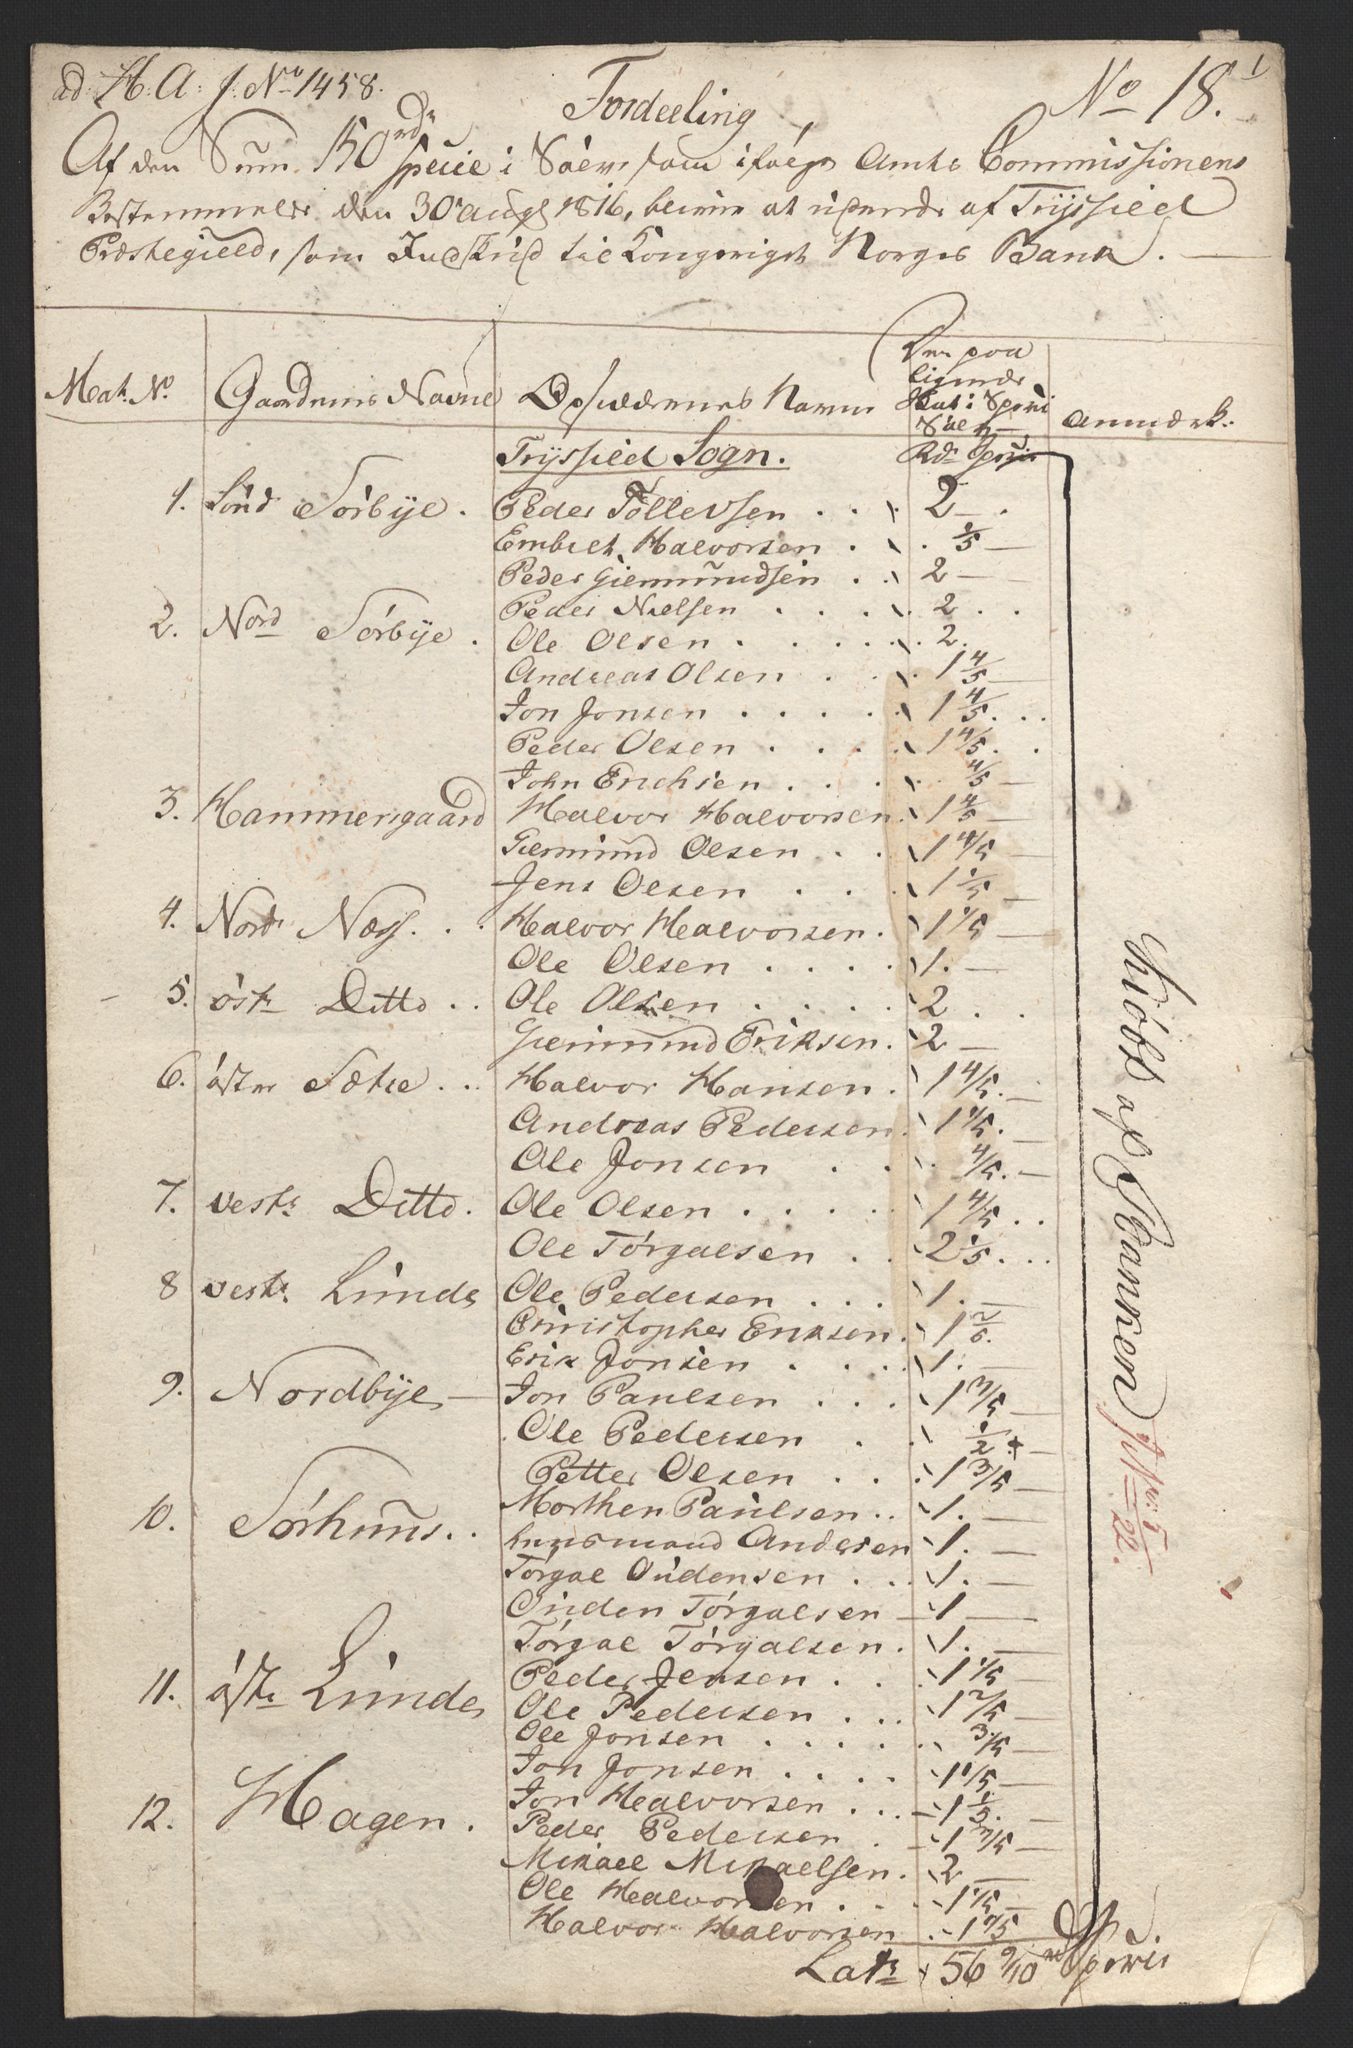 ad. H. A. J. No 1458.
No 18.
1
Fordeeling
Af den Sum 150 rdr Specie i Sølv, som ifølge Amts Commissionens
Bestemmelse den 30 augs 1816, bliver at udrede af Trysild
Præstegield, som Indskud til Kongeriget Norges Bank.
Mat. No.
Gaardenes Navne
Opsiddernes Navne
Den paa
lignede
Skat i Speci
Sølv
Anmærk.
Tryssild Sogn.
Rdr Specie
1. Sönd Sörbye. Peder Tollevsen 2
Embret Halvorsen 1/5
Peder Giermundsen 2
Peder Nielsen 2
2. Nord Sörbye. Ole Olsen 2.
Andreas Olsen 1 4/5
Jon Jonsen 1 4/5
Peder Olsen 1 4/5
John Erichsen 4/5
3. Hammersgaard Halvor Halvorsen 1 4/5
Giermund Olsen 1 4/5
Jens Olsen 1 1/5
4. Nordr Næss. Halvor Halvorsen. 1 1/5
Ole Olsen 1.
5. östr Ditto Ole Olsen 2
Giermund Eriksen. 2
6. östre Sætre Halvor Hansen. 1 4/5
Andreas Pedersen. 1 1/5
Ole Jonsen 4/5
7. vestr Ditto. Ole Olsen 1 4/5
Ole Törgalsen 2 1/5
8 vestr. Lunde Ole Pedersen 1.
Christopher Eriksen. 1 2/5.
Erik Jonsen 1.
9. Nordbye Jon Paulsen 1 3/5
Ole Pedersen 1/2
Petter Olsen 1 3/5
Morthen Paulsen 1.
10. Sörhuus. Huusmand Andersen 1.
Törgal Oudensen 1.
Ouden Törgalsen 1
Törgal Törgalsen. 1.
11. östr Lunde Peder Jensen 1 1/5
Ole Pedersen 1 2/5
Ole Jonsen 3/5
Jon Jonsen 1 1/5
12. Hagen. Jon Halvorsen 1 1/5.
Peder Pedersen 1 2/5
Mikael Mikaelsen. 2
Ole Halvorsen 1 1/5
Halvor Halvorsen 1 2/5
Latr 56 9/10 rdr Specie
kiöbt af Banken
22.